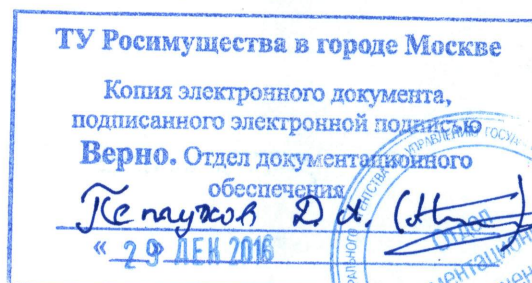 ТУ Росимущества в городе Москве
Копия электронного документа,
подписанного электронной подписью
Верно. Отдел документационного
обеспечения
Д. А.
« 29 » ДЕК 2016
УПРАВЛЕНИЮ
Отдел